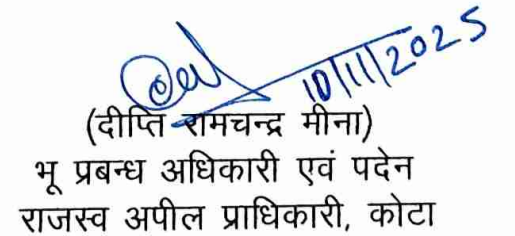 10/11/2025
(दीप्ति रामचन्द्र मीना)
भू प्रबन्ध अधिकारी एवं पदेन
राजस्व अपील प्राधिकारी, कोटा